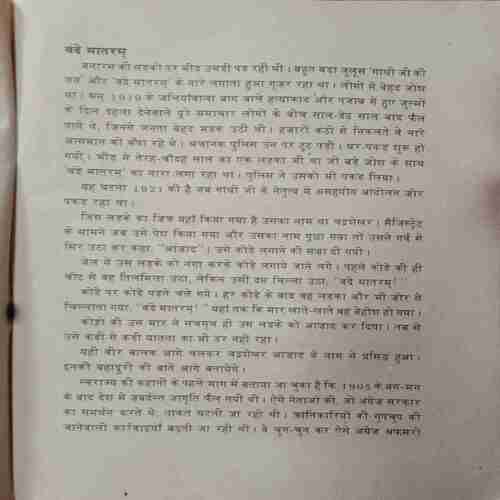 वंदे मातरम्
बनारस की सड़कों पर भीड़ उमड़ी पड़ रही थी। बहुत बड़ा जुलूस 'गांधी जी की
जय' और 'वंदे मातरम्' के नारे लगाता हुआ गुजर रहा था। लोगों में बेहद जोश
था। सन् 1919 के जलियांवाला बाग वाले हत्याकांड और पंजाब में हुए जुल्मों
के दिल दहला देनेवाले पूरे समाचार लोगों के बीच साल-डेढ़ साल बाद फैल
पाये थे, जिनसे जनता बेहद भड़क उठी थी। हजारों कंठों से निकलते ये नारे
आसमान को कंपा रहे थे। अचानक पुलिस उन पर टूट पड़ी। धर-पकड़ शुरू हो
गयी। भीड़ में तेरह-चौदह साल का एक लड़का भी था जो बड़े जोश के साथ
'वंदे मातरम्' का नारा लगा रहा था। पुलिस ने उसको भी पकड़ लिया।
यह घटना 1921 की है जब गांधी जी के नेतृत्व में असहयोग आंदोलन जोर
पकड़ रहा था।
जिस लड़के का जिक्र यहां किया गया है उसका नाम था चंद्रशेखर। मैजिस्ट्रेट
के सामने जब उसे पेश किया गया और उसका नाम पूछा गया तो उसने गर्व से
सिर उठा कर कहा, "आजाद"। उसे कोड़े लगाने की सजा दी गयी।
जेल में उस लड़के को नंगा करके कोड़े लगाये जाने लगे। पहले कोड़े की ही
चोट से वह तिलमिला उठा, लेकिन उसी दम चिल्ला उठा, "वंदे मातरम्!"
कोड़े पर कोड़े पड़ते चले गये। हर कोड़े के बाद वह लड़का और भी जोर से
चिल्लाता गया, "वंदे मातरम्!" यहां तक कि मार खाते-खाते वह बेहोश हो गया।
कोड़ों की उस मार ने सचमुच ही उस लड़के को आजाद कर दिया। तब से
उसे कड़ी-से कड़ी यातना का भी डर नहीं रहा।
यही वीर बालक आगे चलकर चंद्रशेखर आजाद के नाम से प्रसिद्ध हुआ।
इनकी बहादुरी की बातें आगे बतायेंगे।
स्वराज्य की कहानी के पहले भाग में बताया जा चुका है कि 1905 के बंग-भंग
के बाद देश में जबर्दस्त जागृति फैल गयी थी। ऐसे नेताओं की, जो अंग्रेज सरकार
का समर्थन करते थे, ताकत घटती जा रही थी। क्रांतिकारियों की गुपचुप की
जानेवाली कार्रवाइयां बढ़ती जा रही थीं। वे चुन-चुन कर ऐसे अंग्रेज अफसरों